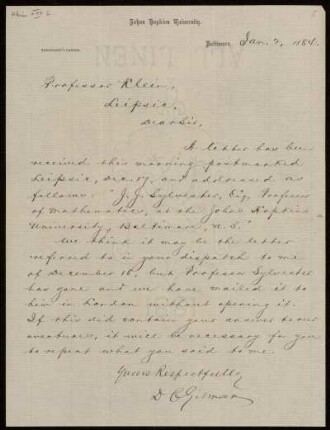 Johns Hopkins University.
PRESIDENT'S OFFICE.
Baltimore, Jan. 7, 1884.
Professor Klein,
Leipsic,
Dear Sir,
A letter has been
received this morning postmarked
Leipsic, and addressed as
follows: "J. J. Sylvester, Esq, Professor
of Mathematics, at the Johns Hopkins
University, Baltimore, U.S."
We think it may be the letter
referred to in your dispatch to me
of December 16, but Professor Sylvester
has gone and we have mailed it to
him in London without opening it.
If this did contain your answer to our
overtures, it will be necessary for you
to repeat what you said to me.
Yours Respectfully
D. C. Gilman